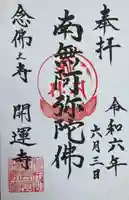 奉拝
令和六年六月三日
南無阿弥陀佛
念佛之寺
開運寺